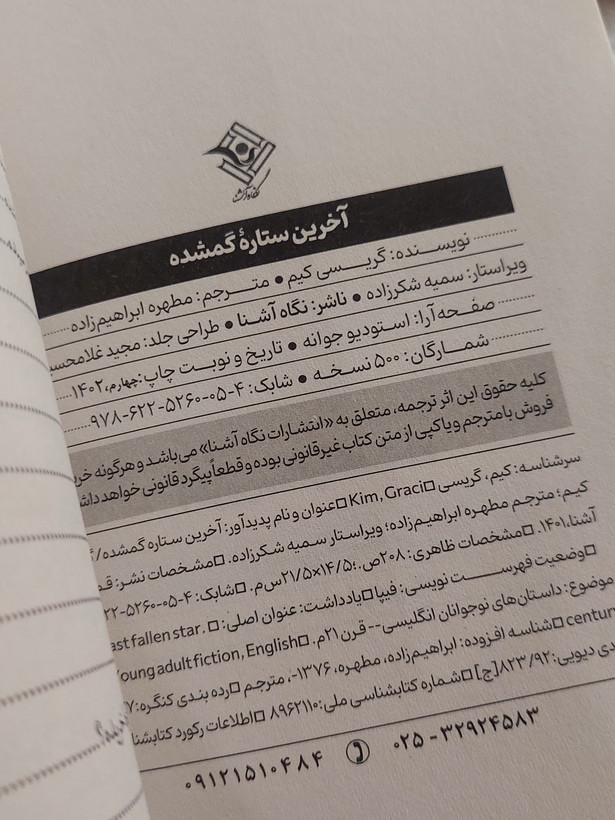 نگاه آشنا
آخرین ستارهٔ گمشده
نویسنده: گریسی کیم • مترجم: مطهره ابراهیم‌زاده
ویراستار: سمیه شکرزاده • ناشر: نگاه آشنا • طراحی جلد: مجید غلامحسین
صفحه‌آرا: استودیو جوانه • تاریخ و نوبت چاپ: چهارم، ۱۴۰۲
شمارگان: ۵۰۰ نسخه • شابک: ۴-۰۵-۵۲۶۰-۶۲۲-۹۷۸
کلیه حقوق این اثر ترجمه، متعلق به «انتشارات نگاه آشنا» می‌باشد و هرگونه
فروش با مترجم و یا کپی از متن کتاب غیرقانونی بوده و قطعاً پیگرد قانونی خواهد
سرشناسه: کیم، گریسی □ Kim, Graci □ عنوان و نام پدیدآور: آخرین ستاره گمشده /
کیم؛ مترجم مطهره ابراهیم‌زاده؛ ویراستار سمیه شکرزاده. □ مشخصات نشر:
آشنا، ۱۴۰۱. □ مشخصات ظاهری: ۲۰۸ص.؛ ۱۴/۵×۲۱/۵س‌م. □ شابک: ۴-۰۵-۵۲۶۰-۶۲۲
□ وضعیت فهرست نویسی: فیپا □ یادداشت: عنوان اصلی: □ .ast fallen star
موضوع: داستان‌های نوجوانان انگلیسی -- قرن ۲۱م. □ oung adult fiction, English
centur □ شناسه افزوده: ابراهیم‌زاده، مطهره، ۱۳۷۶-، مترجم □ رده بندی کنگره: ۷
دی دیویی: ۸۲۳/۹۲[ج] □ شماره کتابشناسی ملی: ۸۹۶۲۱۱۰ □ اطلاعات رکورد کتابشنا
۰۲۵ - ۳۲۹۲۴۵۸۳ ۰۹۱۲۱۵۱۰۴۸۴